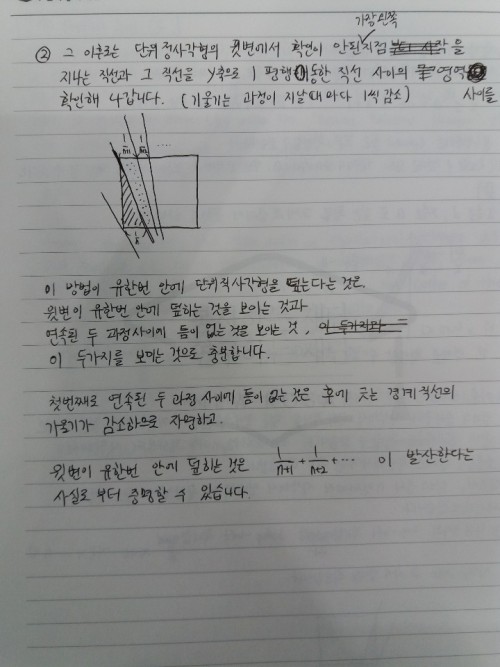 가장 왼쪽
② 그 이후로는 단위정사각형의 윗변에서 확인이 안된 지점을
지나는 직선과 그 직선을 y축으로 1 평행이동한 직선 사이의 영역
확인해 나갑니다. (기울기는 과정이 지날때 마다 1씩 감소) 사이를
1/n+1 1/n+2 ....
1/n
이 방법이 유한번 안에 단위직사각형을 덮는다는 것은
윗변이 유한번 안에 덮히는 것을 보이는 것과
연속된 두 과정사이에 틈이 없는 것을 보이는 것, 이 두가지와
이 두가지를 보이는 것으로 충분합니다.
첫번째로 연속된 두 과정 사이에 틈이 없는 것은 후에 긋는 경계직선의
기울기가 감소하므로 자명하고.
윗변이 유한번 안에 덮히는 것은 1/n+1 + 1/n+2 + ... 이 발산한다는
사실로 부터 증명할 수 있습니다.